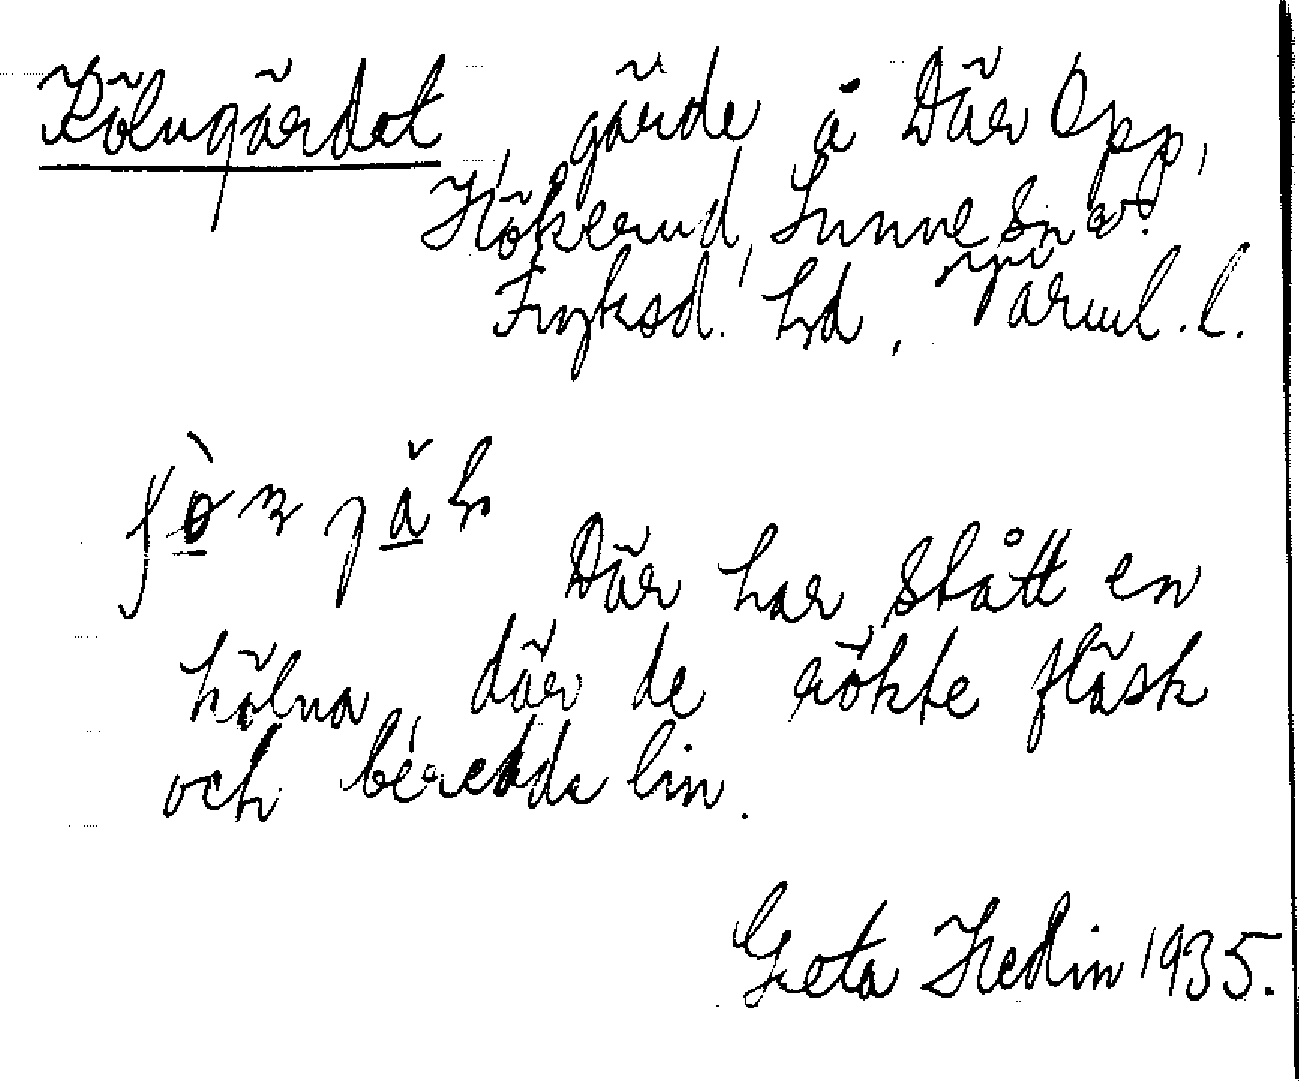 Kölngärdet, gärde å Där Opp,
Hökerud, Sunne Sn
Fryksd. hd, Värml. l.
Där har stått en
kölna, där de rökte fläsk
och beredde lin.
Greta Hedin 1935.